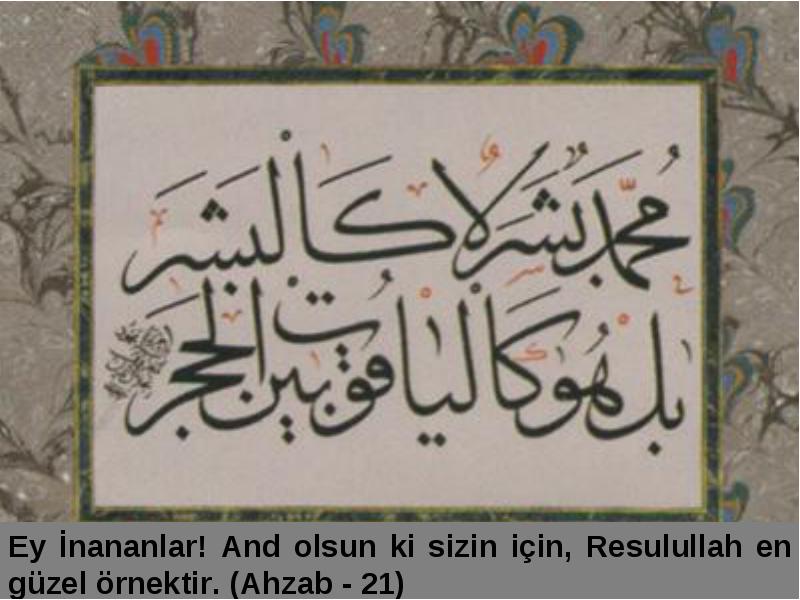 محمد بشر لا كالبشر
بل هو كالياقوت بين الحجر
Ey İnananlar! And olsun ki sizin için, Resulullah en
güzel örnektir. (Ahzab - 21)